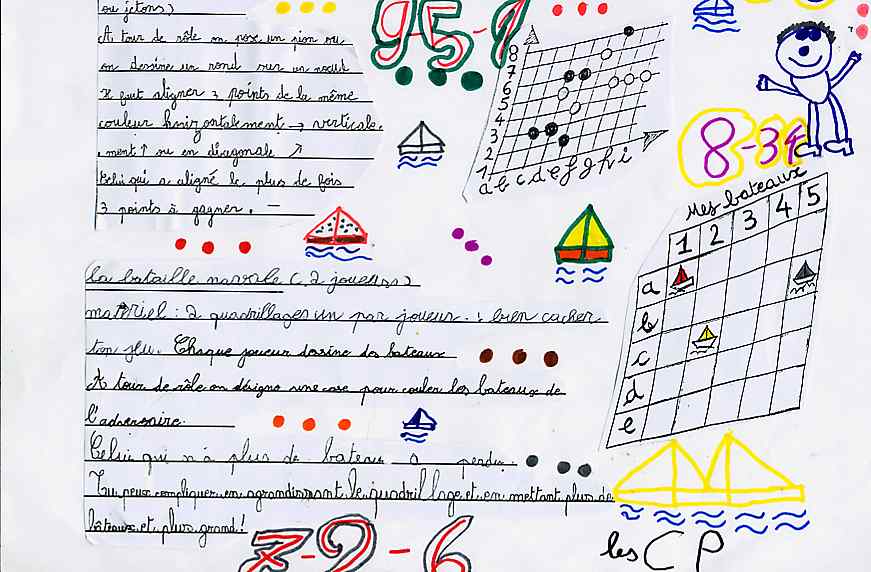 ou jetons)
A tour de rôle on pose un pion ou
on dessine un rond sur un nœud
Il faut aligner 3 points de la même
couleur horizontalement → verticale.
.ment ↑ ou en diagonale ↗
Celui qui a aligné le plus de fois
3 points à gagner.
9-5-1
8
7
6
5
4
3
2
1
a b c d e f g h i
8-34
La bataille navale (2 joueurs)
matériel : 2 quadrillages un par joueur. : bien cacher
ton jeu. Chaque joueur dessine des bateaux
A tour de rôle on désigne une case pour couler les bateaux de
l'adversaire.
Celui qui n'a plus de bateau a perdu
Tu peux compliquer en agrandissant le quadrillage et en mettant plus de
bateaux et plus grand!
Mes bateaux
1 2 3 4 5
a
b
c
d
e
7-9-6
les CP